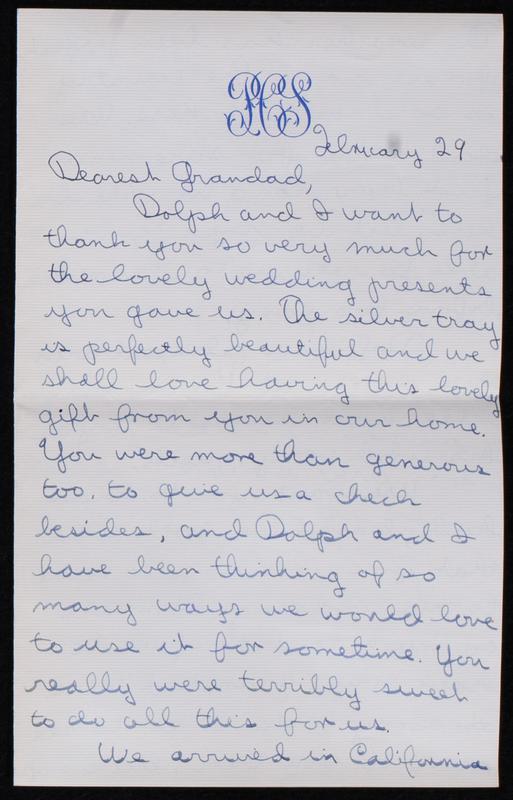 PHS
February 29
Dearest Grandad,
Dolph and I want to
thank you so very much for
the lovely wedding presents
you gave us. The silver tray
is perfectly beautiful and we
shall love having this lovely
gift from you in our home.
You were more than generous
too, to give us a check
besides, and Dolph and I
have been thinking of so
many ways we would love
to use it for sometime. You
really were terribly sweet
to do all this for us.
We arrived in California